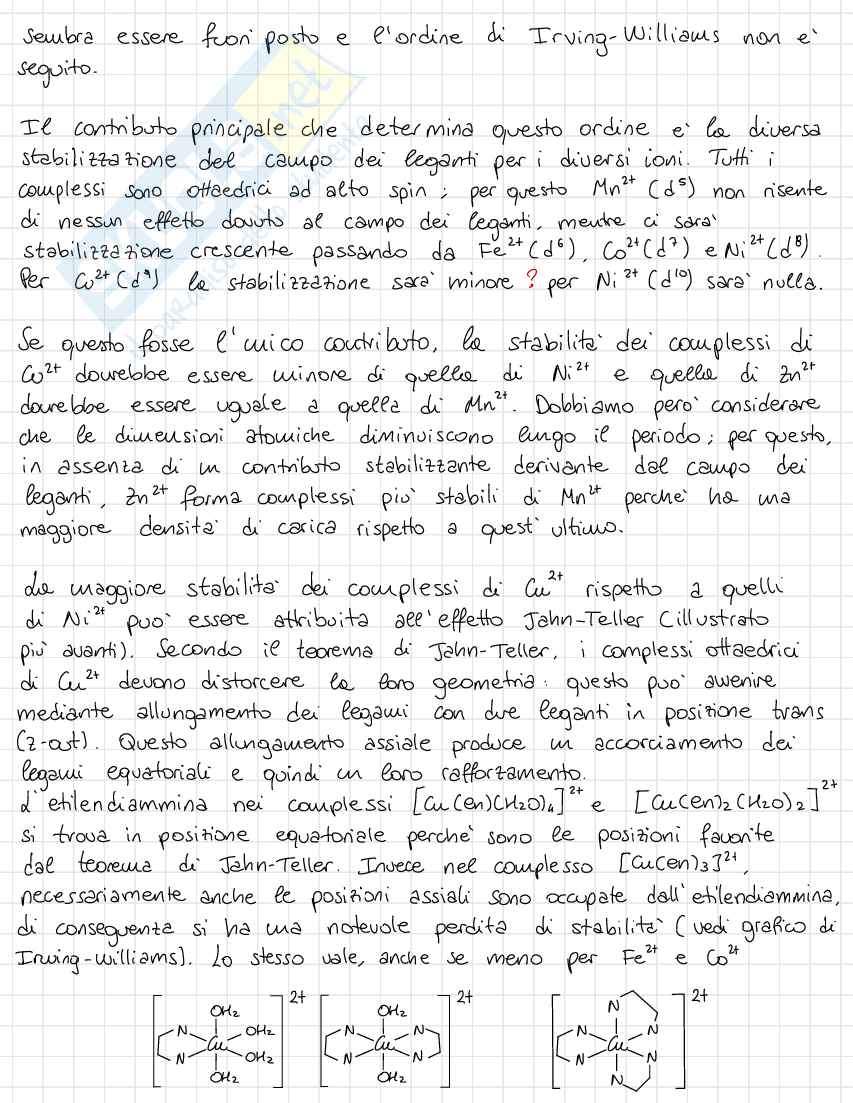 sembra essere fuori posto e l'ordine di Irving-Williams non e'
seguito.
Il contributo principale che determina questo ordine e' la diversa
stabilizzazione del campo dei leganti per i diversi ioni. Tutti i
complessi sono ottaedrici ad alto spin; per questo Mn²⁺ (d⁵) non risente
di nessun effetto dovuto al campo dei leganti, mentre ci sara'
stabilizzazione crescente passando da Fe²⁺ (d⁶), Co²⁺ (d⁷) e Ni²⁺ (d⁸).
Per Cu²⁺ (d⁹) la stabilizzazione sara' minore ? per Ni²⁺ (d¹⁰) sara' nulla.
Se questo fosse l'unico contributo, la stabilita' dei complessi di
Cu²⁺ dovrebbe essere minore di quella di Ni²⁺ e quella di Zn²⁺
dovrebbe essere uguale a quella di Mn²⁺. Dobbiamo pero' considerare
che le dimensioni atomiche diminuiscono lungo il periodo; per questo,
in assenza di un contributo stabilizzante derivante dal campo dei
leganti, Zn²⁺ forma complessi piu' stabili di Mn²⁺ perche' ha una
maggiore densita' di carica rispetto a quest'ultimo.
La maggiore stabilita' dei complessi di Cu²⁺ rispetto a quelli
di Ni²⁺ puo' essere attribuita all'effetto Jahn-Teller (illustrato
piu' avanti). Secondo il teorema di Jahn-Teller, i complessi ottaedrici
di Cu²⁺ devono distorcere la loro geometria: questo puo' avvenire
mediante allungamento dei legami con due leganti in posizione trans
(z-out). Questo allungamento assiale produce un accorciamento dei
legami equatoriali e quindi un loro rafforzamento.
L'etilendiammina nei complessi [Cu(en)(H₂O)₄]²⁺ e [Cu(en)₂(H₂O)₂]²⁺
si trova in posizione equatoriale perche' sono le posizioni favorite
dal teorema di Jahn-Teller. Invece nel complesso [Cu(en)₃]²⁺,
necessariamente anche le posizioni assiali sono occupate dall'etilendiammina,
di conseguenza si ha una notevole perdita di stabilita' (vedi grafico di
Irving-Williams). Lo stesso vale, anche se meno per Fe²⁺ e Co²⁺
2+ 2+ 2+
OH₂ OH₂ N
N OH₂ N N N N
Cu Cu Cu
N OH₂ N N N N
OH₂ OH₂ N